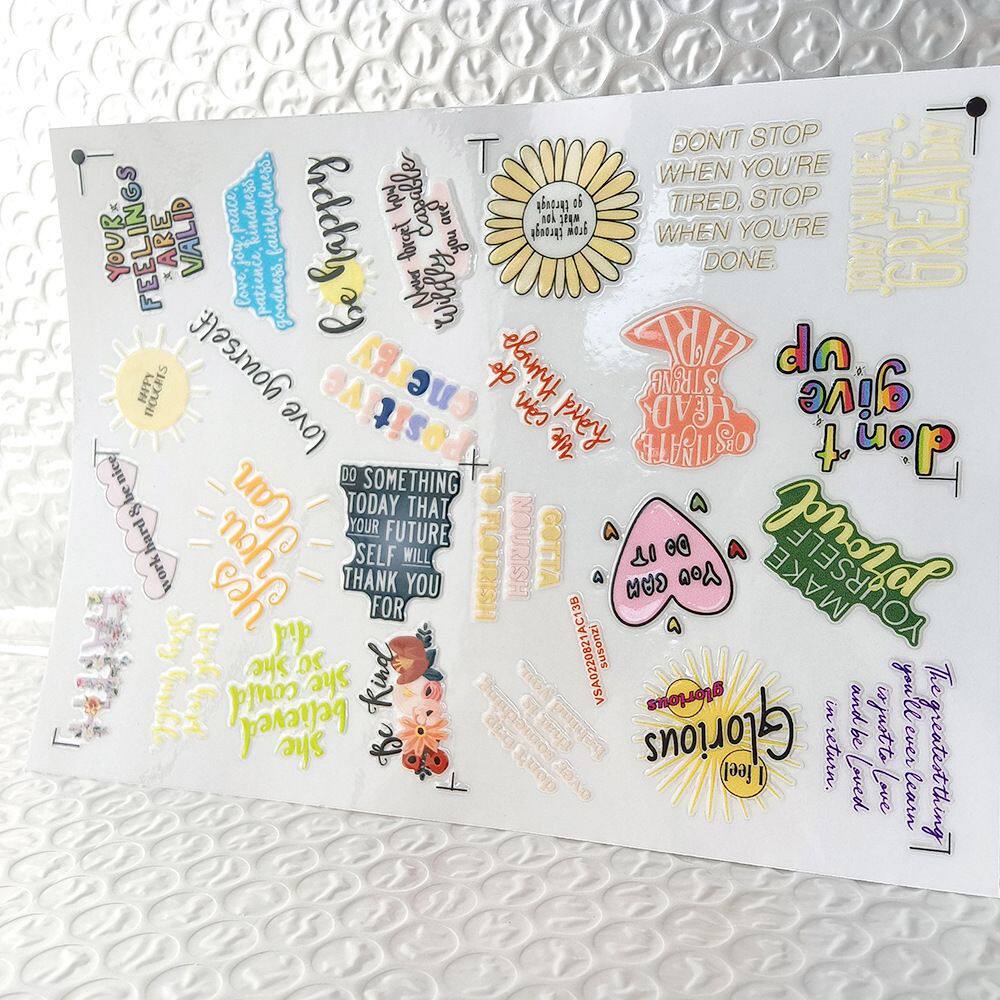 YOUR
FEELINGS
ARE
VALID
love, joy, peace,
patience, kindness,
goodness, faithfulness,
be happy
Never forget how
Wildly capable
you are
grow through
what you
go through
DON'T STOP
WHEN YOU'RE
TIRED, STOP
WHEN YOU'RE
DONE.
TODAY WILL BE A
GREAT DAY
HAPPY
THOUGHTS
love yourself.
Positive
energy
We can do
hard things
OBSTINATE
HEAD
STRONG
GIRL
don't
give
up
work hard & be nice
yes
you
can
DO SOMETHING
TODAY THAT
YOUR FUTURE
SELF WILL
THANK YOU
FOR
GOTTA
NOURISH
TO FLOURISH
YOU CAN
DO IT
MAKE
YOURSELF
proud
Work hard
Stay humble
she
believed
she could
so she
did
Be Kind
VSA0220821AC13B
susonzi
I feel
Glorious
glorious
The greatest thing
you'll ever learn
is just to love
and be loved
in return.